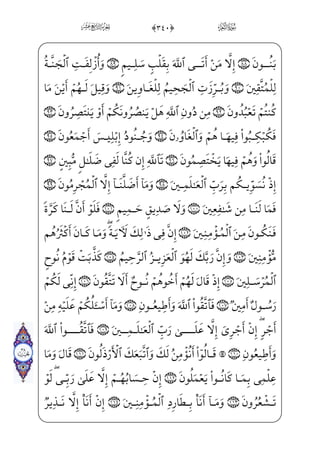 سُورَةُ الشُّعَرَاءِ ﴿٣٤٠﴾ الجُزْءُ التَّاسِعَ عَشَرَ
بَنُونَ ٨٨ إِلَّا مَنْ أَتَى ٱللَّهَ بِقَلْبٍ سَلِيمٍ ٨٩ وَأُزْلِفَتِ ٱلْجَنَّةُ
لِلْمُتَّقِينَ ٩٠ وَبُرِّزَتِ ٱلْجَحِيمُ لِلْغَاوِينَ ٩١ وَقِيلَ لَهُمْ أَيْنَ مَا
كُنتُمْ تَعْبُدُونَ ٩٢ مِن دُونِ ٱللَّهِ هَلْ يَنصُرُونَكُمْ أَوْ يَنتَصِرُونَ ٩٣
فَكُبْكِبُوا۟ فِيهَا هُمْ وَٱلْغَاوُۥنَ ٩٤ وَجُنُودُ إِبْلِيسَ أَجْمَعُونَ ٩٥
قَالُوا۟ وَهُمْ فِيهَا يَخْتَصِمُونَ ٩٦ تَٱللَّهِ إِن كُنَّا لَفِى ضَلَٰلٍ مُّبِينٍ ٩٧
إِذْ نُسَوِّيكُم بِرَبِّ ٱلْعَٰلَمِينَ ٩٨ وَمَآ أَضَلَّنَآ إِلَّا ٱلْمُجْرِمُونَ ٩٩
فَمَا لَنَا مِن شَٰفِعِينَ ١٠٠ وَلَا صَدِيقٍ حَمِيمٍ ١٠١ فَلَوْ أَنَّ لَنَا كَرَّةً
فَنَكُونَ مِنَ ٱلْمُؤْمِنِينَ ١٠٢ إِنَّ فِى ذَٰلِكَ لَءَايَةً ۖ وَمَا كَانَ أَكْثَرُهُم
مُّؤْمِنِينَ ١٠٣ وَإِنَّ رَبَّكَ لَهُوَ ٱلْعَزِيزُ ٱلرَّحِيمُ ١٠٤ كَذَّبَتْ قَوْمُ نُوحٍ
ٱلْمُرْسَلِينَ ١٠٥ إِذْ قَالَ لَهُمْ أَخُوهُمْ نُوحٌ أَلَا تَتَّقُونَ ١٠٦ إِنِّى لَكُمْ
رَسُولٌ أَمِينٌ ١٠٧ فَٱتَّقُوا۟ ٱللَّهَ وَأَطِيعُونِ ١٠٨ وَمَآ أَسْـَٔلُكُمْ عَلَيْهِ مِنْ
أَجْرٍ ۖ إِنْ أَجْرِىَ إِلَّا عَلَىٰ رَبِّ ٱلْعَٰلَمِينَ ١٠٩ فَٱتَّقُوا۟ ٱللَّهَ
وَأَطِيعُونِ ١١٠ ۞ قَالُوٓا۟ أَنُؤْمِنُ لَكَ وَٱتَّبَعَكَ ٱلْأَرْذَلُونَ ١١١ قَالَ وَمَا
عِلْمِى بِمَا كَانُوا۟ يَعْمَلُونَ ١١٢ إِنْ حِسَابُهُمْ إِلَّا عَلَىٰ رَبِّى ۖ لَوْ
تَشْعُرُونَ ١١٣ وَمَآ أَنَا۠ بِطَارِدِ ٱلْمُؤْمِنِينَ ١١٤ إِنْ أَنَا۠ إِلَّا نَذِيرٌ